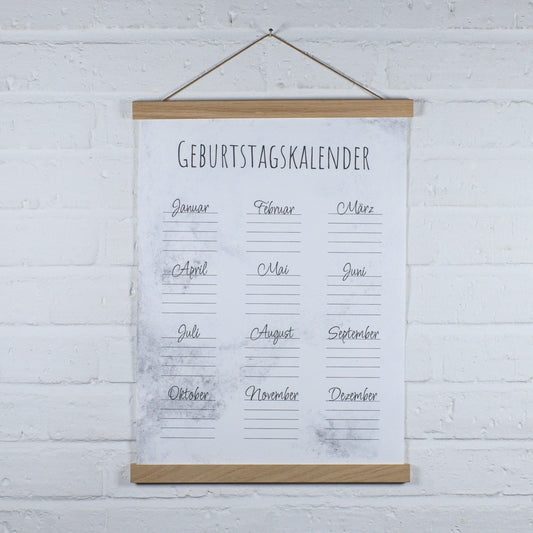 GEBURTSTAGSKALENDER
Januar Februar März
April Mai Juni
Juli August September
Oktober November Dezember